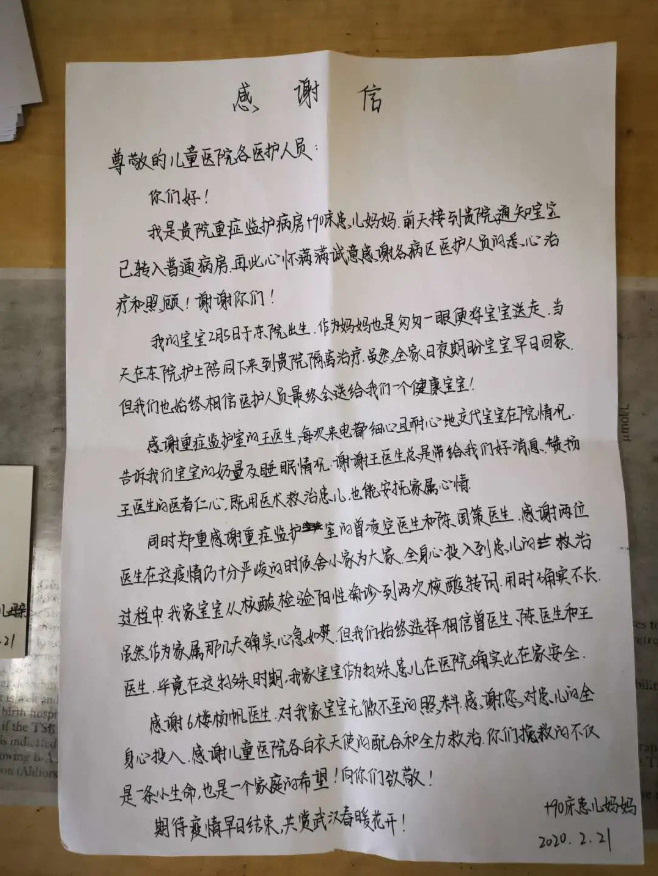 感谢信
尊敬的儿童医院各医护人员：
你们好！
我是贵院重症监护病房+90床患儿妈妈.前天接到贵院通知宝宝
已转入普通病房.再此心怀满满诚意感谢各病区医护人员的悉心治
疗和照顾！谢谢你们！
我的宝宝2月5日于东院出生.作为妈妈也是匆匆一眼便将宝宝送走.当
天在东院护士陪同下来到贵院隔离治疗.虽然,全家日夜期盼宝宝早日回家.
但我们也始终相信医护人员最终会送给我们一个健康宝宝！
感谢重症监护室的王医生,每次来电都细心且耐心地交代宝宝在院情况.
告诉我们宝宝的奶量及睡眠情况.谢谢王医生总是带给我们好消息.赞扬
王医生的医者仁心,既用医术救治患儿,也能安抚家属心情.
同时郑重感谢重症监护室的曾凌空医生和陈国策医生.感谢两位
医生在这疫情仍十分严峻的时候舍小家为大家.全身心投入到患儿的救治
过程中.我家宝宝从核酸检验阳性确诊到两次核酸转阴.用时确实不长.
虽然,作为家属那几天确实心急如焚.但我们始终选择相信曾医生、陈医生和王
医生.毕竟在这特殊时期,我家宝宝作为特殊患儿在医院确实比在家安全.
感谢6楼杨帆医生.对我家宝宝无微不至的照料.感谢您.对患儿的全
身心投入.感谢儿童医院各白衣天使的配合和全力救治.你们挽救的不仅
是一条小生命,也是一个家庭的希望！向你们致敬！
期待疫情早日结束,共赏武汉春暖花开！
+90床患儿妈妈
2020.2.21
21
birth hosp
if the TSB